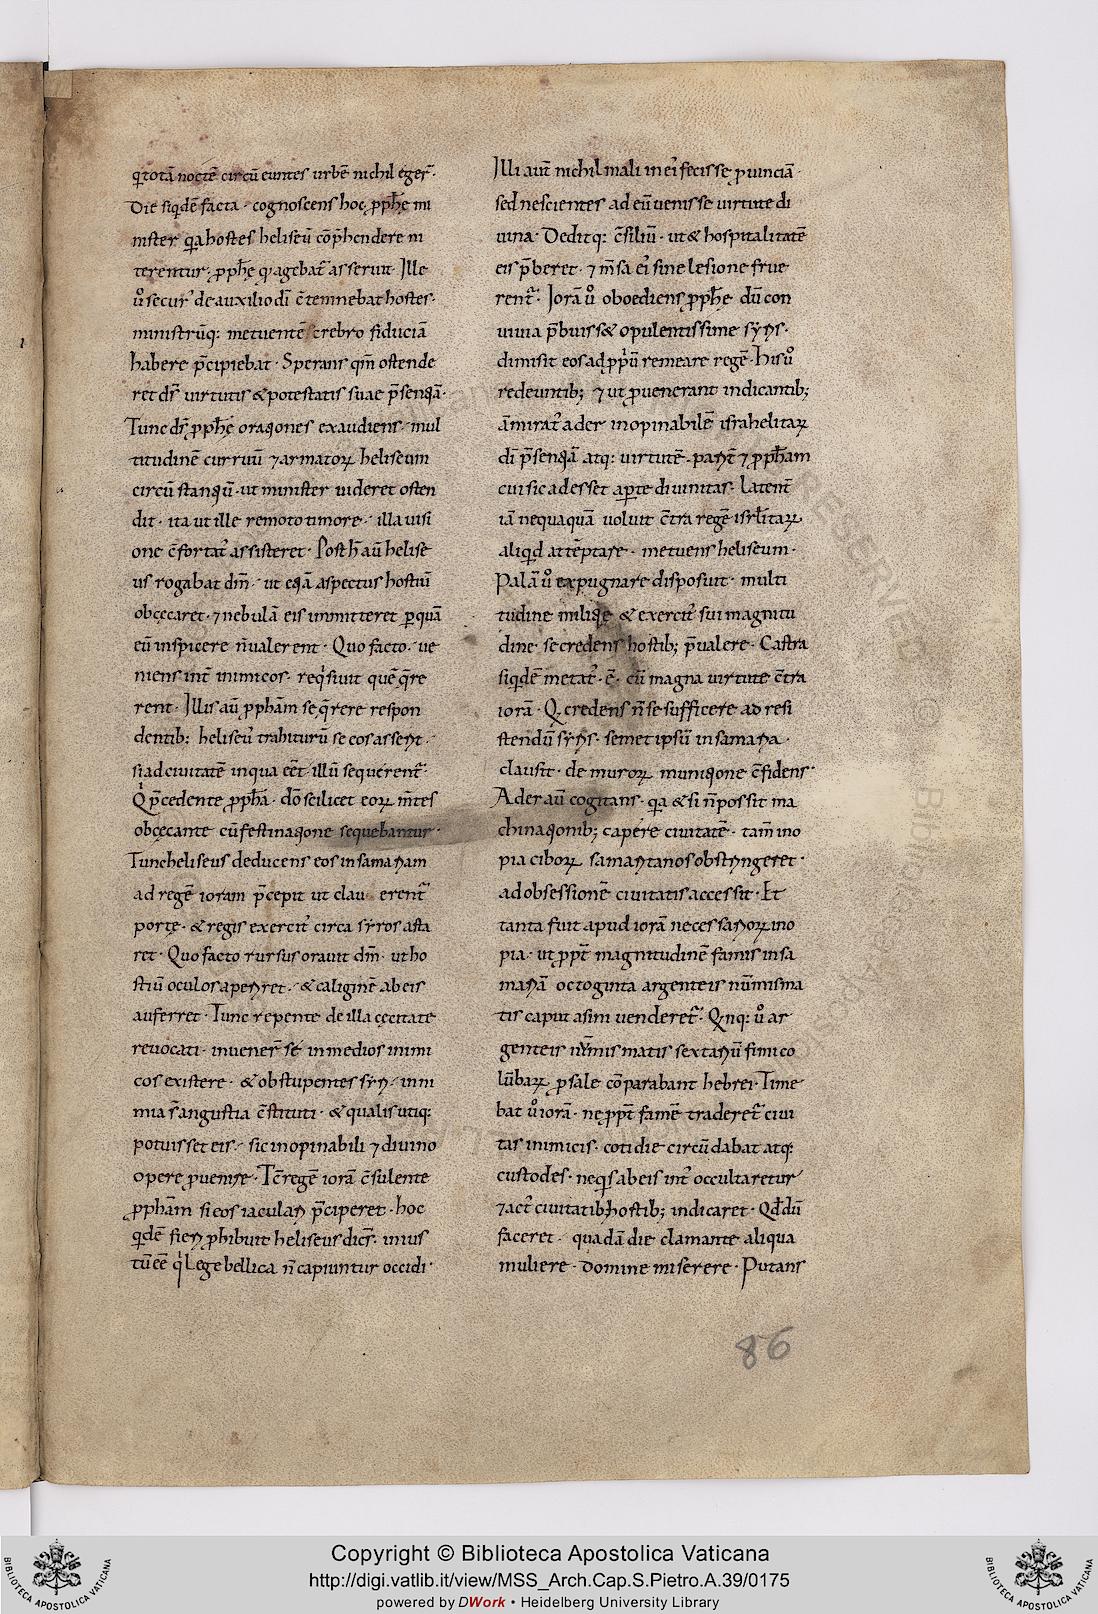 qi totā noctē circū euntes urbē nichil eger̄·
Die siqdē facta· cognoscens hoc pph̄ę mi
nister qia hostes heliseū cōp̄hendere ni
terentur· pph̄ę qd agebat̄ asseruit· Ille
ů secur᾽ de auxilio dī c̄temnebat hostes·
ministrūq: metuentē crebro fiduciā
habere p̄cipiebat· Sperans qm̄ ostende
ret dr̄ uirtutis & potestatis suae p̄sentiā·
Tunc dr̄ pph̄ę orationes exaudiens· mul
titudinē curruū ⁊ armatoꝝ heliseum
circū stantiū· ut minister uideret osten
dit· ita ut ille remoto timore· illa uisi
one c̄fortat᾽ assisteret· Post h̄ aū helise
us rogabat dm̄· ut etiā aspectus hostiū
obcęcaret· ⁊ nebulā eis immitteret p quā
eū inspicere n̄ ualerent· Quo facto· ue
niens int̄ inimicos· reqsiuit quē qre
rent· Illis aū pph̄am se qrere respon
dentib: heliseū trahiturū se eos asserit·
si ad ciuitatē in qua eēt illū sequerent̄·
Qi p̄cedente pph̄a· dō scilicet eoꝝ m̄tes
obcęcante cū festinatione sequebantur·
Tunc heliseus deducens eos in samariam
ad regē ioram p̄cepit ut clau erent̄
portę· & regis exercit᾽ circa syros asta
ret· Quo facto rursus orauit dm̄· ut ho
stiū oculos aperiret· & caliginē ab eis
auferret· Tunc repente de illa cęcitate
reuocati· inuener̄ se in medios inimi
cos existere· & obstupentes syri· inni
mia s̄ angustia c̄stituti· & qualis utiq:
potuisset eis· sic inopinabili ⁊ diuino
opere puenire· Tc̄ regē iorā c̄sulente
pph̄am si eos iaculari p̄ciperet· hoc
qdē fieri phibuit heliseus dicr̄· inius
tū eē qi Lege bellica n̄ capiuntur occidi·
Illi aut̄ nichil mali in ei᾽ fecisse puinciā·
sed nescientes ad eū uenisse uirtute di
uina· Deditq: c̄siliū· ut & hospitalitatē
eis p̄beret· ⁊ m̄sa ei᾽ sine lesione frue
rent̄· Iorā ů oboediens pph̄ę dū con
uiuia p̄buiss& opulentissime syris·
dimisit eos ad ppiū remeare regē· His ů
redeuntib; ⁊ ut puenerant indicantib;
āmirat᾽ ader inopinabilē israhelitaꝝ
dī p̄sentiā atq: uirtutē· parit̄ ⁊ pph̄am
cui sic adesset apte diuinitas· Latent̄
iā nequaquā uoluit c̄tra regē isrl̄itaꝝ
aliqd attēptare· metuens heliseum·
Palā ů expugnare disposuit· multi
tudine militie & exercit᾽ sui magnitu
dine se credens hostib; p̄ualere· Castra
siqdē metat᾽· ē· cū magna uirtute c̄tra
iorā· Qi credens n̄ se sufficere ad resi
stendū syris· semet ipsū in samaria·
clausit· de muroꝝ munitione c̄fidens·
Ader aū cogitans· qa & si n̄ possit ma
chinationib; capere ciuitatē· tam̄ ino
pia ciboꝝ samaritanos obstringeret·
ad obsessionē ciuitatis accessit· Et
tanta fuit apud iorā necessarioꝝ ino
pia· ut ppt̄ magnitudinē famis in sa
mariā octoginta argenteis nūmisma
tis caput asini uenderet̄· Qinq: ů ar
genteis nūmismatis sextariū fimi co
lūbaꝝ p sale cōparabant hebrei· Time
bat ů iorā· ne ppt̄ famē traderet̄ ciui
tas inimicis· cotidie circūdabat atq:
custodes· neqs ab eis int᾽ occultaretur
⁊ act᾽ ciuitatib; hostib; indicaret· Qd dū
faceret· quadā die clamante aliqua
muliere· domine miserere· Putans
86
Copyright © Biblioteca Apostolica Vaticana
http://digi.vatlib.it/view/MSS_Arch.Cap.S.Pietro.A.39/0175
powered by DWork • Heidelberg University Library